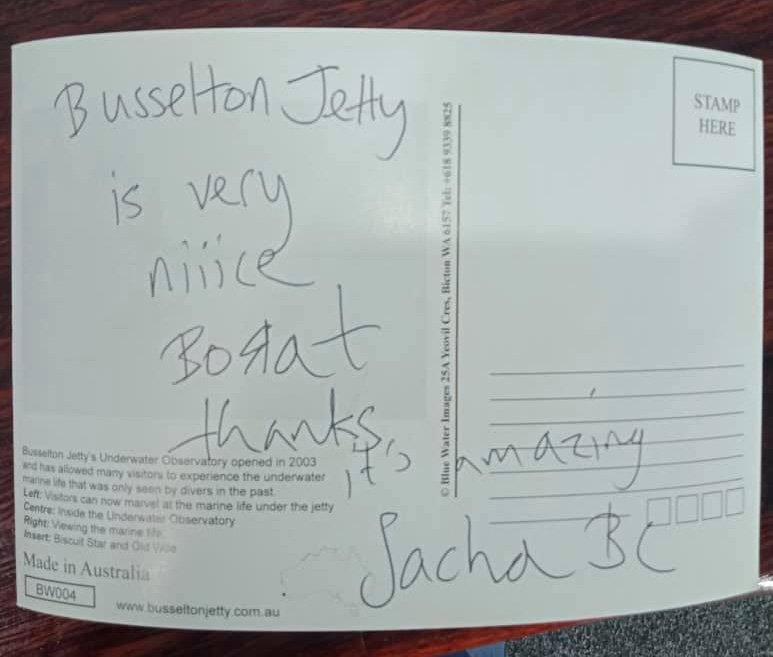 Busselton Jetty
is very
niiice
BoЯat
thanks,
it's amazing
Sacha BC
STAMP
HERE
© Blue Water Images 25A Yeovil Cres, Bicton WA 6157 Tel: +618 9339 8825
Busselton Jetty's Underwater Observatory opened in 2003
and has allowed many visitors to experience the underwater
marine life that was only seen by divers in the past.
Left: Visitors can now marvel at the marine life under the jetty
Centre: Inside the Underwater Observatory
Right: Viewing the marine life
Insert: Biscuit Star and Old Wife
Made in Australia
BW004
www.busseltonjetty.com.au